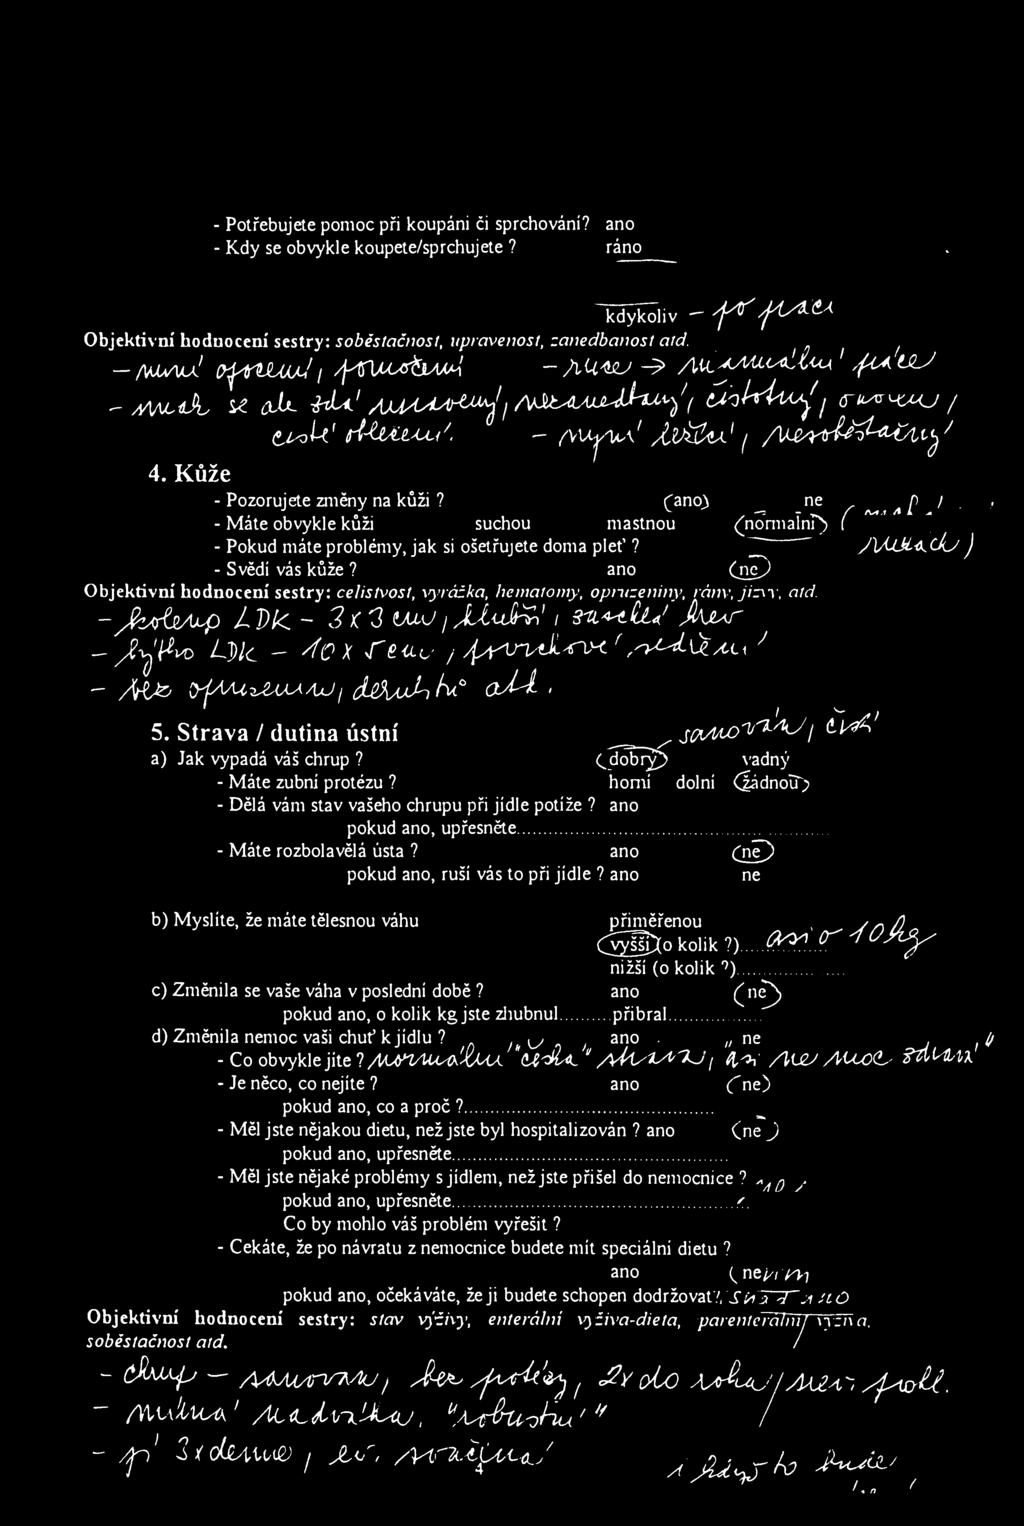 - Potřebujete pomoc při koupáni či sprchování? ano
- Kdy se obvykle koupete/sprchujete ? ráno
kdykoliv - po práci
Objektivní hodnocení sestry: soběstačnost, upravenost, zanedbanost atd.
- nyní opocený, pomočený - ruce -> manuální práce
- jinak se ale zdá upravený, nezanedbaný, čistotný,
čisté oblečení. - nyní ležící, nesoběstačný
4. Kůže
- Pozorujete změny na kůži ? ano ne
- Máte obvykle kůži suchou mastnou normalní ( rukách)
- Pokud máte problémy, jak si ošetřujete doma pleť ?
- Svědí vás kůže ? ano ne
Objektivní hodnocení sestry: celistvost, vyrážka, hematomy, opruzeniny, rány, jizvy, atd.
- koleno LDK - 3 x 3 cm, hlubší, zaschlá krev
- lýtko LDK - 10 x 5 cm, povrchové
- bez opruzenin, dekubitů atd.
5. Strava / dutina ústní sanován, čistí
a) Jak vypadá váš chrup ? dobrý vadný
- Máte zubní protézu ? horní dolní žádnou
- Dělá vám stav vašeho chrupu při jídle potíže ? ano
pokud ano, upřesněte...
- Máte rozbolavělá ústa ? ano ne
pokud ano, ruší vás to při jídle ? ano ne
b) Myslíte, že máte tělesnou váhu přiměřenou
vyšší (o kolik ?)... asi o 10 kg
nižší (o kolik ?)...
c) Změnila se vaše váha v poslední době ? ano ne
pokud ano, o kolik kg jste zhubnul...přibral...
d) Změnila nemoc vaši chuť k jídlu ? ano ne
- Co obvykle jíte ? normální "česká" strava, asi "ne moc zdravá"
- Je něco, co nejíte ? ano ne
pokud ano, co a proč ?...
- Měl jste nějakou dietu, než jste byl hospitalizován ? ano ne
pokud ano, upřesněte...
- Měl jste nějaké problémy s jídlem, než jste přišel do nemocnice ?
pokud ano, upřesněte...
Co by mohlo váš problém vyřešit ?
- Cekáte, že po návratu z nemocnice budete mít speciální dietu ?
ano nevím
pokud ano, očekáváte, že ji budete schopen dodržovat?, SNAD ANO
Objektivní hodnocení sestry: stav výživy, enterální výživa-dieta, parenterální výživa,
soběstačnost atd.
- chrup - sanován, bez protézy, 2x do roka prev. prohl.
- mírná nadváha, "robustní"
- jí 3x denně, ev. svačina
4
i když to bude